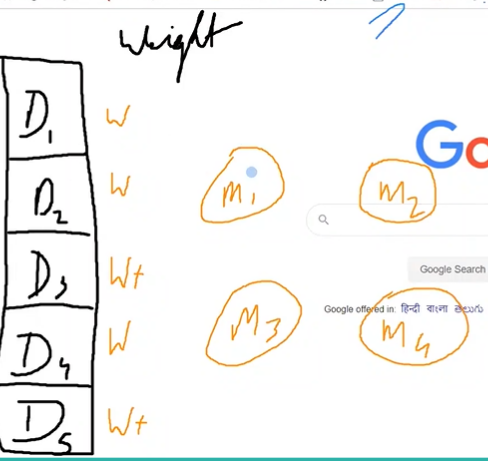 Weight
D1 W
D2 W
D3 Wt
D4 W
D5 Wt
M1 M2
M3 M4
Go
Google Search
Google offered in: हिन्दी বাংলা తెలుగు